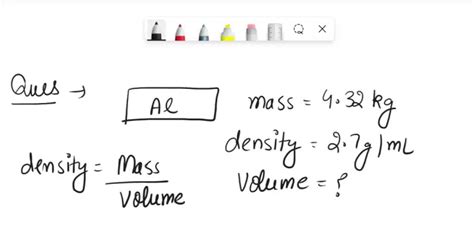 Ques →
Al
mass = 4.32 kg
density = 2.7g/mL
Volume = ?
density = Mass
Volume